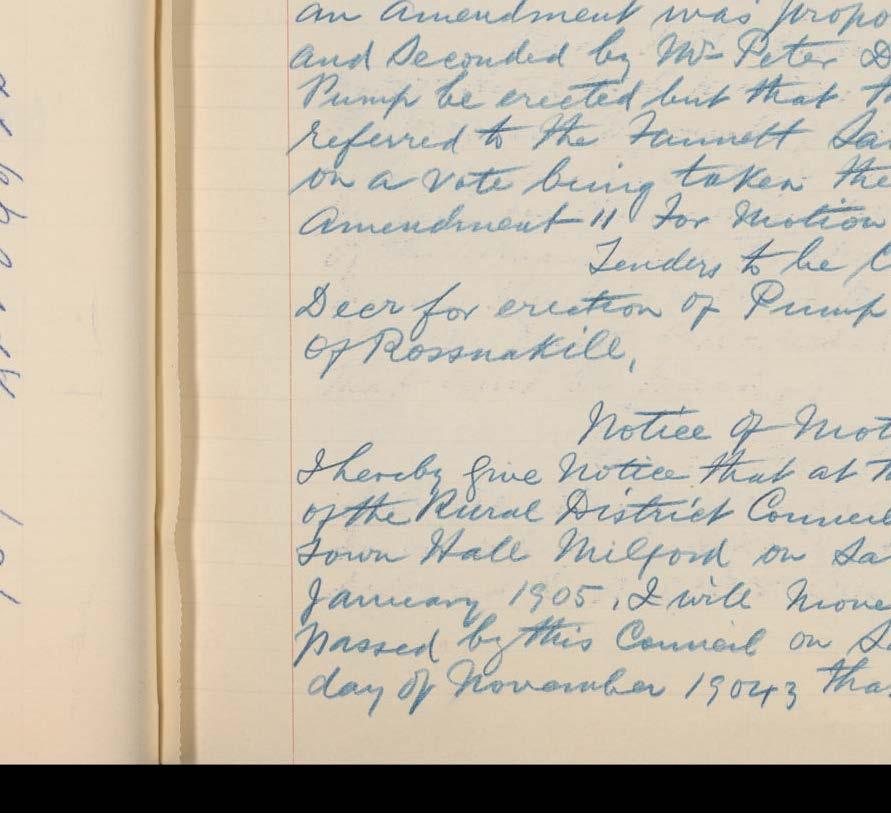 an Amendment was propo
and Seconded by Mr Peter D
Pump be erected but that th
referred to the Fannett San
on a Vote being taken the
Amendment 11 For Motion
Tenders to be C
Decr for erection of Pump
of Rossnakill,
Notice of Mot
I hereby give Notice that at t
of the Rural District Council
Town Hall Milford on Sa
January 1905, I will Move
passed by this Council on Sa
day of November 1904 tha